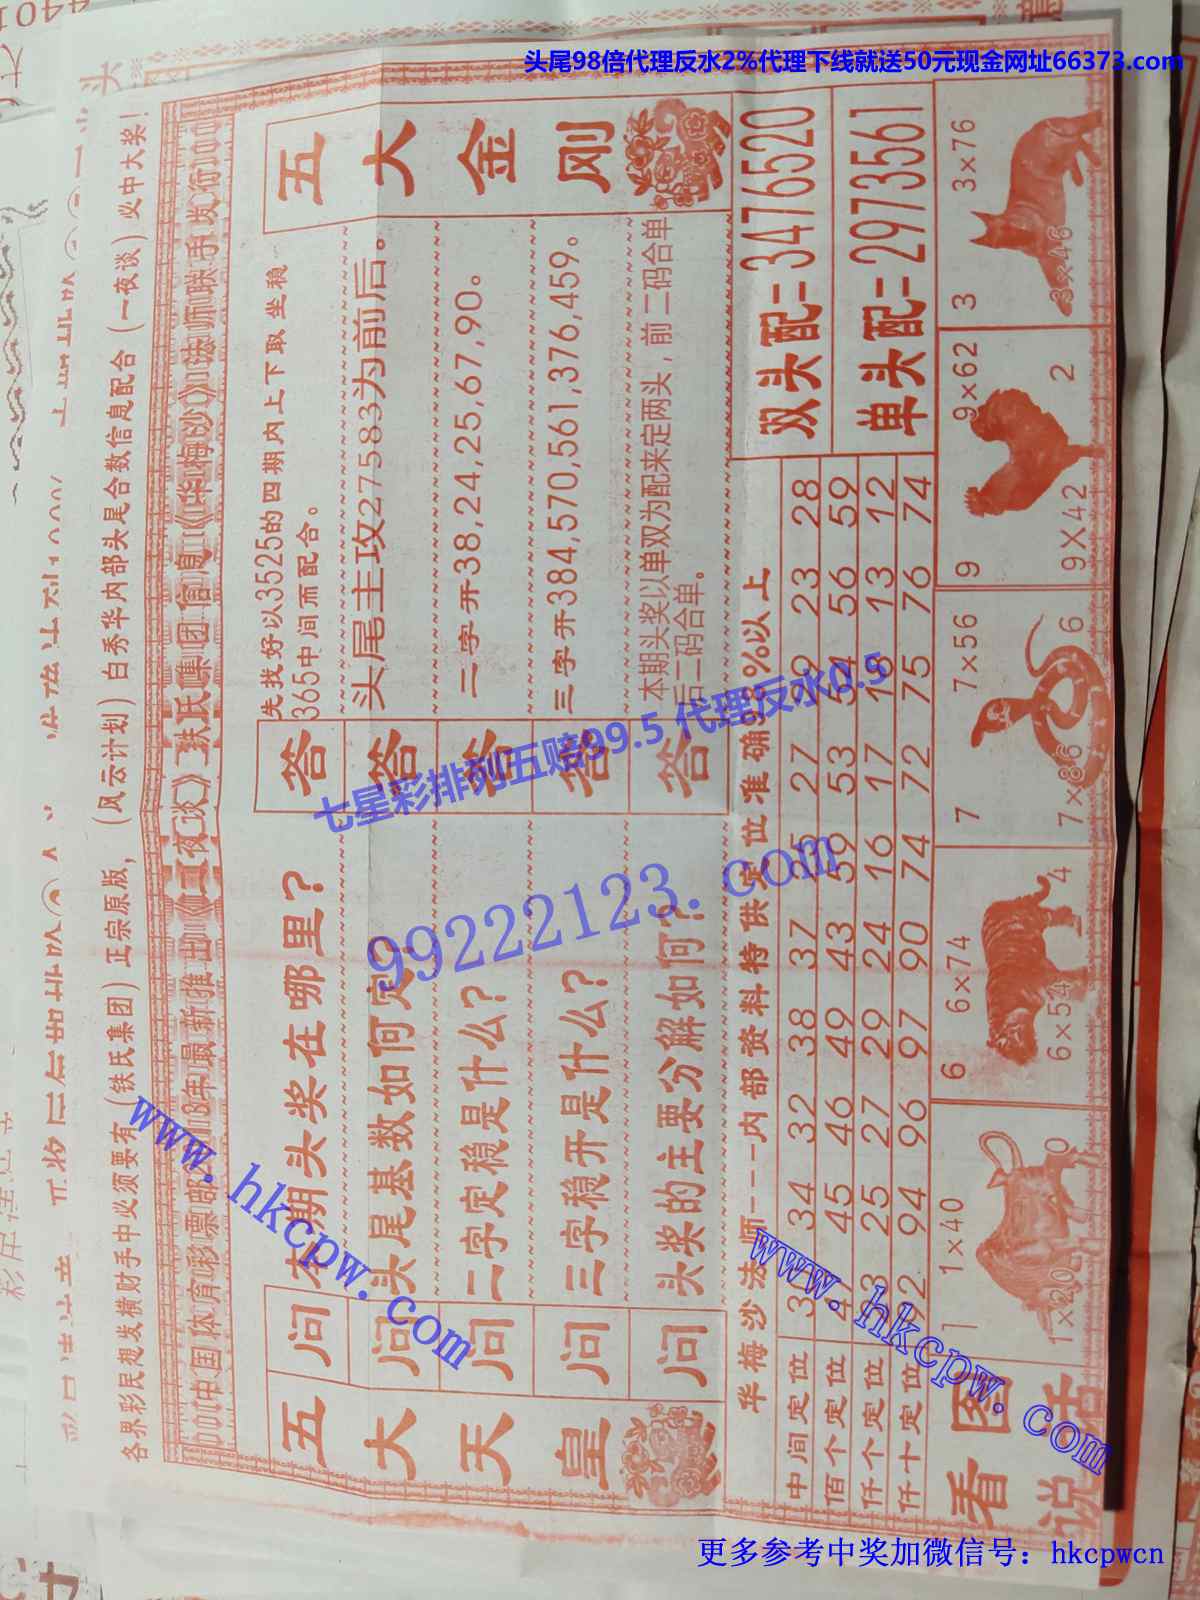 头尾98倍代理反水2%代理下线就送50元现金网址66373.com
各界彩民想发横财手中必须要有（铁氏集团）正宗原版，（风云计划）白秀华内部头尾合数信息配合（一夜谈）必中大奖！
中国体育彩票部2018年最新推出《一夜谈》铁氏集团信息《华梅沙》法师联手发行
五大天皇
五大金刚
问 本期头奖在哪里？
答 先找好以3525的四期内上下取坐稳
365中间而配合。
问 头尾基数如何定？
答 头尾主攻27583为前后。
问 二字定稳是什么？
答 二字开38,24,25,67,90。
问 三字稳开是什么？
答 三字开384,570,561,376,459。
问 头奖的主要分解如何？
答 本期头奖以单双为配来定两头，前二码合单
后二码合单。
华梅沙法师----内部资料特供定位准确98%以上
中间定位 34 32 38 37 27 23 28
佰个定位 45 46 49 43 59 53 54 56 59
仟个定位 25 27 29 24 16 17 18 13 12
仟十定位 92 94 96 97 90 74 72 75 76 74
双头配=3476520
单头配=2973561
看图说话
1 1×40
1×20 0
6 6×74
6×54 4
7 7×56
7×86 6
9 9×62
9X42 2
3 3×76
3×46
七星彩排列五赔99.5 代理反水0.5
99222123.com
www.hkcpw.com
www.hkcpw.com
更多参考中奖加微信号：hkcpwcn